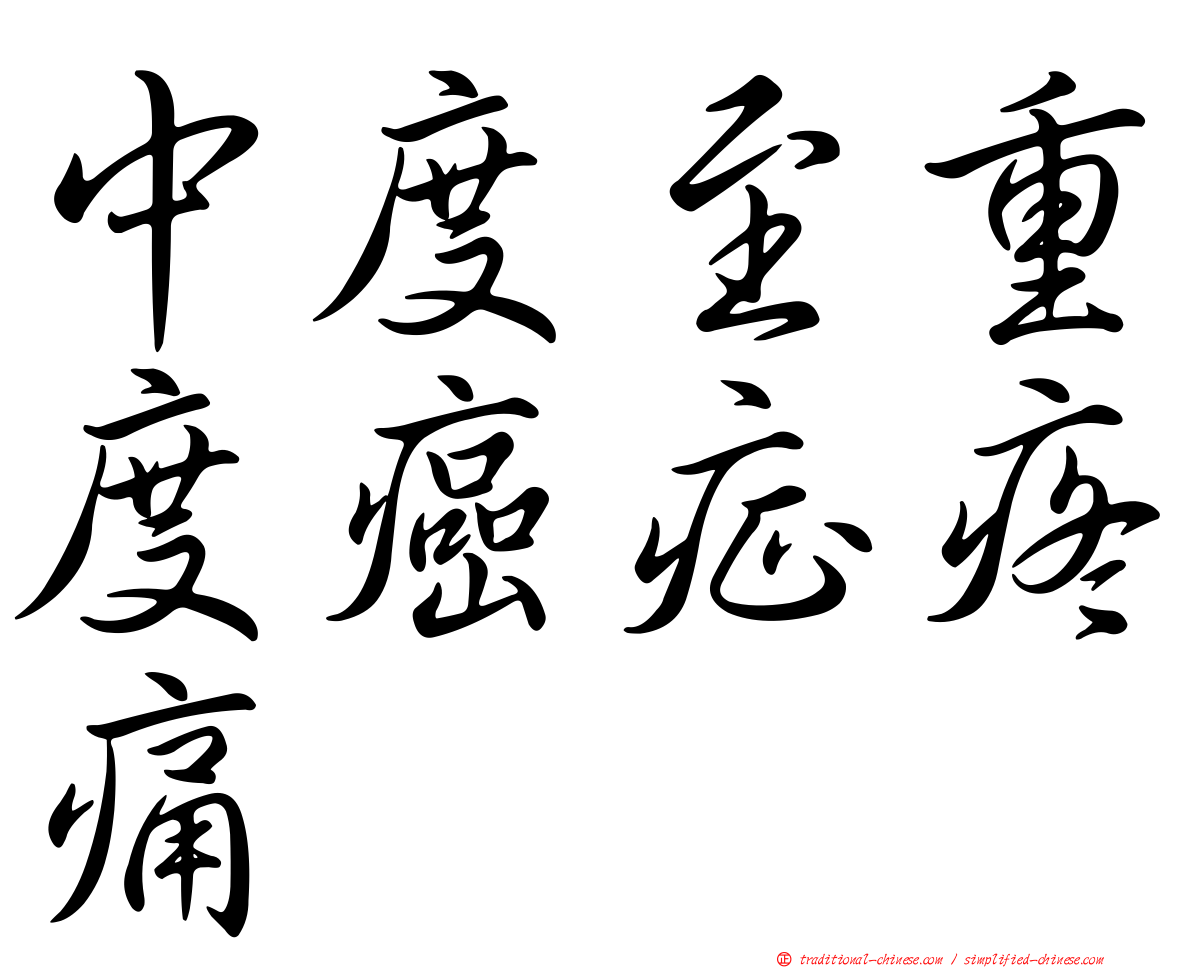 中度至重
度癌症疼
痛
正 traditional-chinese.com / simplified-chinese.com